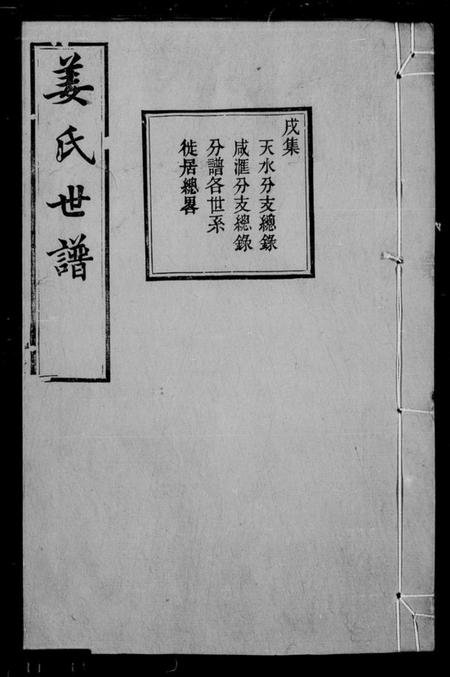 戌集
天水分支總錄
咸滙分支總錄
分譜各世系
徙居總畧
姜氏世譜